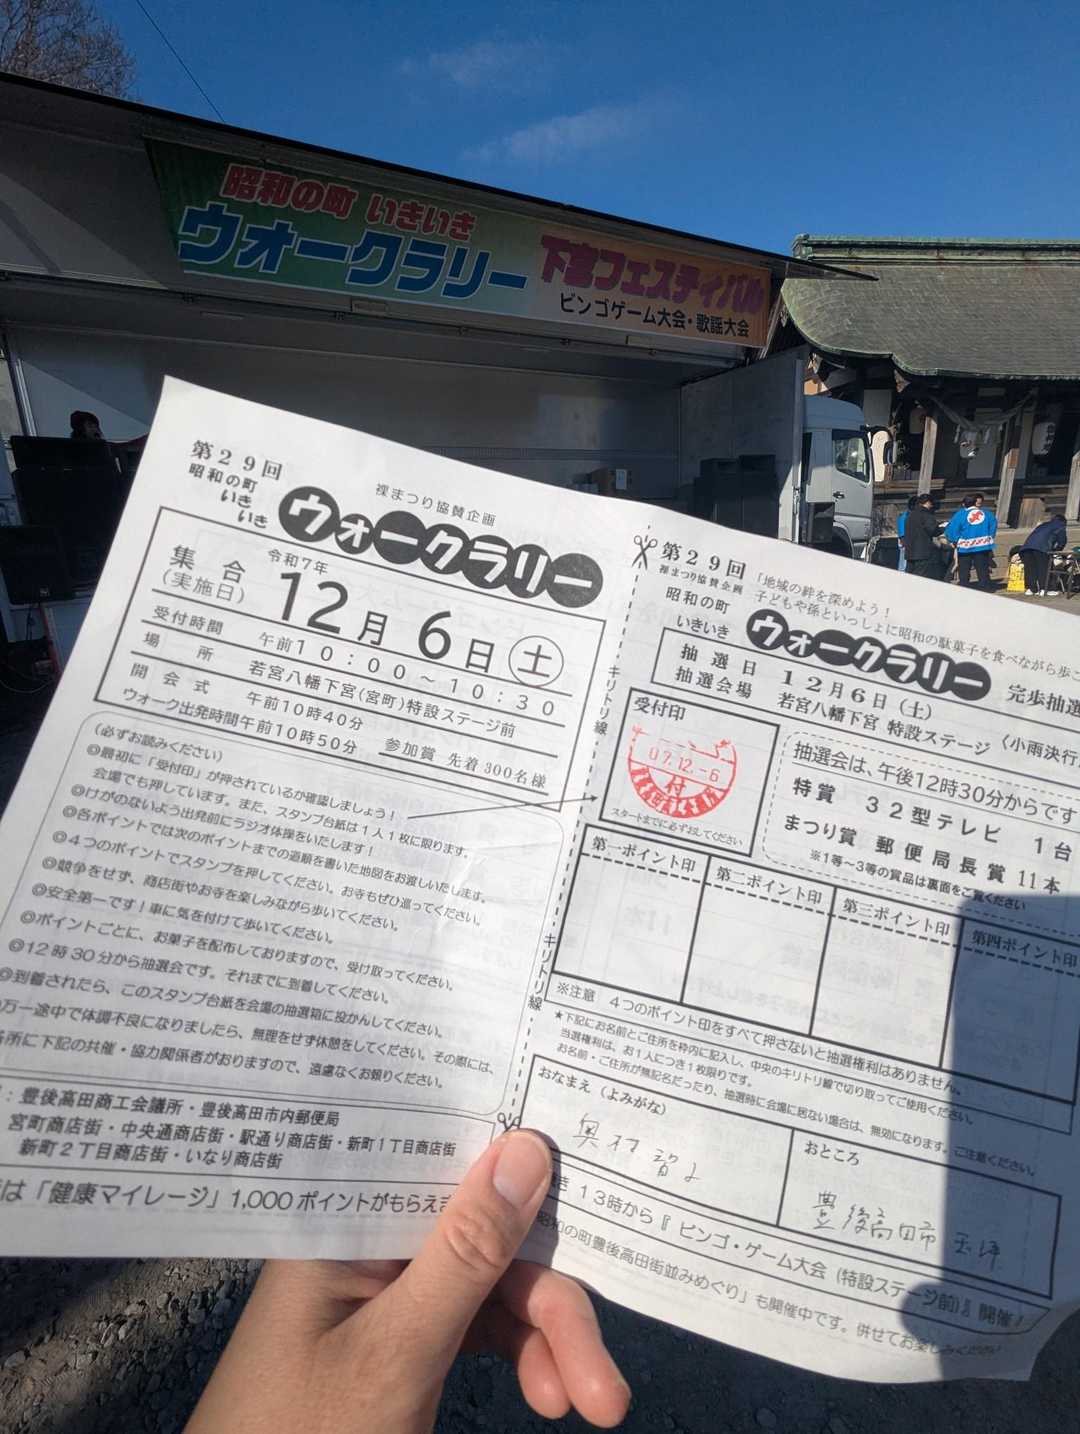 昭和の町 いきいき
ウォークラリー
下宮フェスティバル
ビンゴゲーム大会・歌謡大会
第29回
昭和の町
いき
いき
裸まつり協賛企画
ウォークラリー
集合
(実施日)
令和7年
12月6日(土)
受付時間 午前10:00~10:30
場所 若宮八幡下宮(宮町)特設ステージ前
開会式 午前10時40分
ウォーク出発時間午前10時50分 参加賞 先着300名様
(必ずお読みください)
◎最初に「受付印」が押されているか確認しましょう!
会場でも押しています。また、スタンプ台紙は1人1枚に限ります。
◎けがのないよう出発前にラジオ体操をいたします!
◎各ポイントでは次のポイントまでの道順を書いた地図をお渡しいたします。
◎4つのポイントでスタンプを押してください。お寺もぜひ巡ってください。
◎競争をせず、商店街やお寺を楽しみながら歩いてください。
◎安全第一です!車に気を付けて歩いてください。
◎ポイントごとに、お菓子を配布しておりますので、受け取ってください。
◎12時30分から抽選会です。それまでに到着してください。
◎到着されたら、このスタンプ台紙を会場の抽選箱に投かんしてください。
万一途中で体調不良になりましたら、無理をせず休憩をしてください。その際には、
所に下記の共催・協力関係者がおりますので、遠慮なくお頼りください。
:豊後高田商工会議所・豊後高田市内郵便局
宮町商店街・中央通商店街・駅通り商店街・新町1丁目商店街
新町2丁目商店街・いなり商店街
は「健康マイレージ」1,000ポイントがもらえま
キリトリ線
キリトリ線
第29回
裸まつり協賛企画
昭和の町
いきいき
「地域の絆を深めよう!
子どもや孫といっしょに昭和の駄菓子を食べながら歩こ
ウォークラリー
完歩抽選
抽選日 12月6日(土)
抽選会場 若宮八幡下宮 特設ステージ
〈小雨決行
受付印
07.12.-6
付
スタートまでに必ずおしてください
抽選会は、午後12時30分からです
特賞 32型テレビ 1台
まつり賞 郵便局長賞 11本
※1等~3等の賞品は裏面をご覧ください
第一ポイント印
第二ポイント印
第三ポイント印
第四ポイント印
※注意 4つのポイント印をすべて押さないと抽選権利はありません。
★下記にお名前とご住所を枠内に記入し、中央のキリトリ線で切り取ってご使用ください。
当選権利は、お1人につき1枚限りです。
お名前・ご住所が無記名だったり、抽選時に会場に居ない場合は、無効になります。ご注意ください。
おなまえ(よみがな)
おところ
豊後高田市 玉津
き 13時から『ビンゴ・ゲーム大会(特設ステージ前)』開催!
昭和の町豊後高田街並みめぐり」も開催中です。併せてお楽しみください